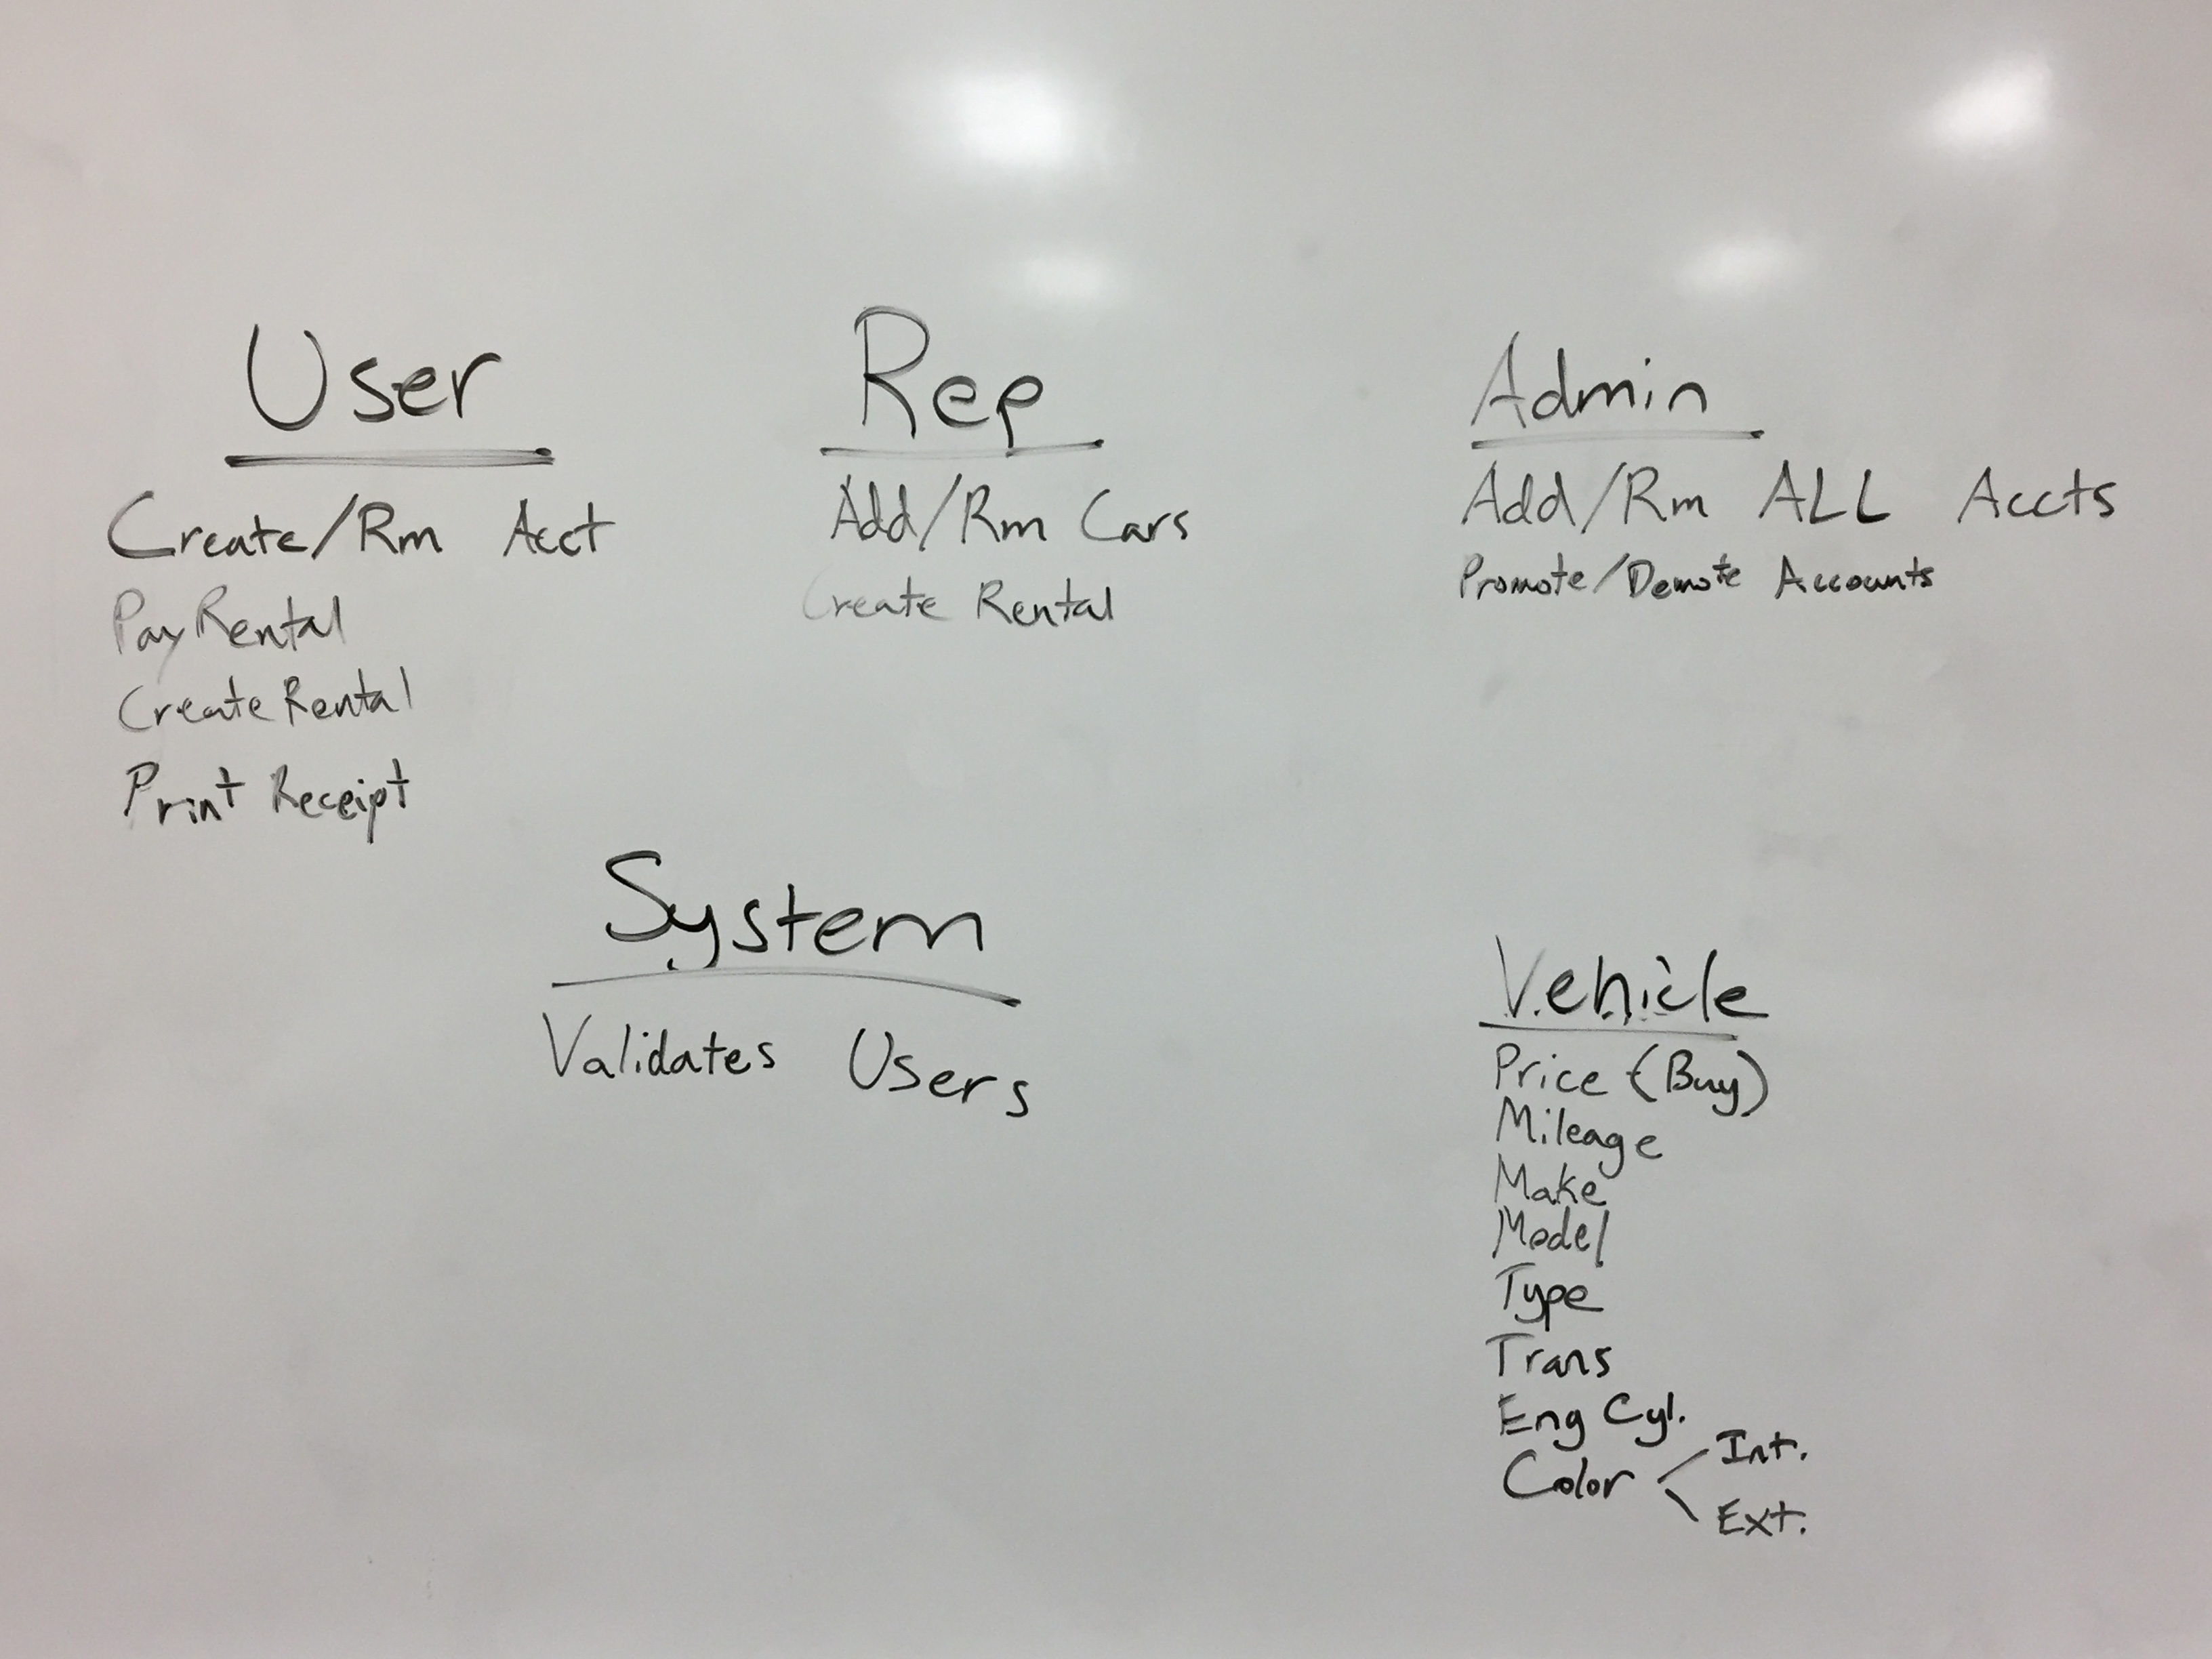 User
Create/Rm Acct
Pay Rental
Create Rental
Print Receipt
Rep
Add/Rm Cars
Create Rental
Admin
Add/Rm ALL Accts
Promote/Demote Accounts
System
Validates Users
Vehicle
Price (Buy)
Mileage
Make
Model
Type
Trans
Eng Cyl.
Color
Int.
Ext.